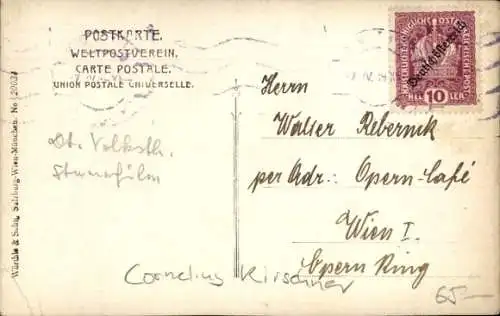 POSTKARTE.
WELTPOSTVEREIN.
CARTE POSTALE.
UNION POSTALE UNIVERSELLE.
Würthle & Sohn, Salzburg-Wien-München. No
Deutschösterreich
10
HELLER
Herrn
Walter Rebernik
per Adr.: Opern-Café
Wien I.
Opern Ring
Dt. Volksth.
Cornelius Kirschner
65.—